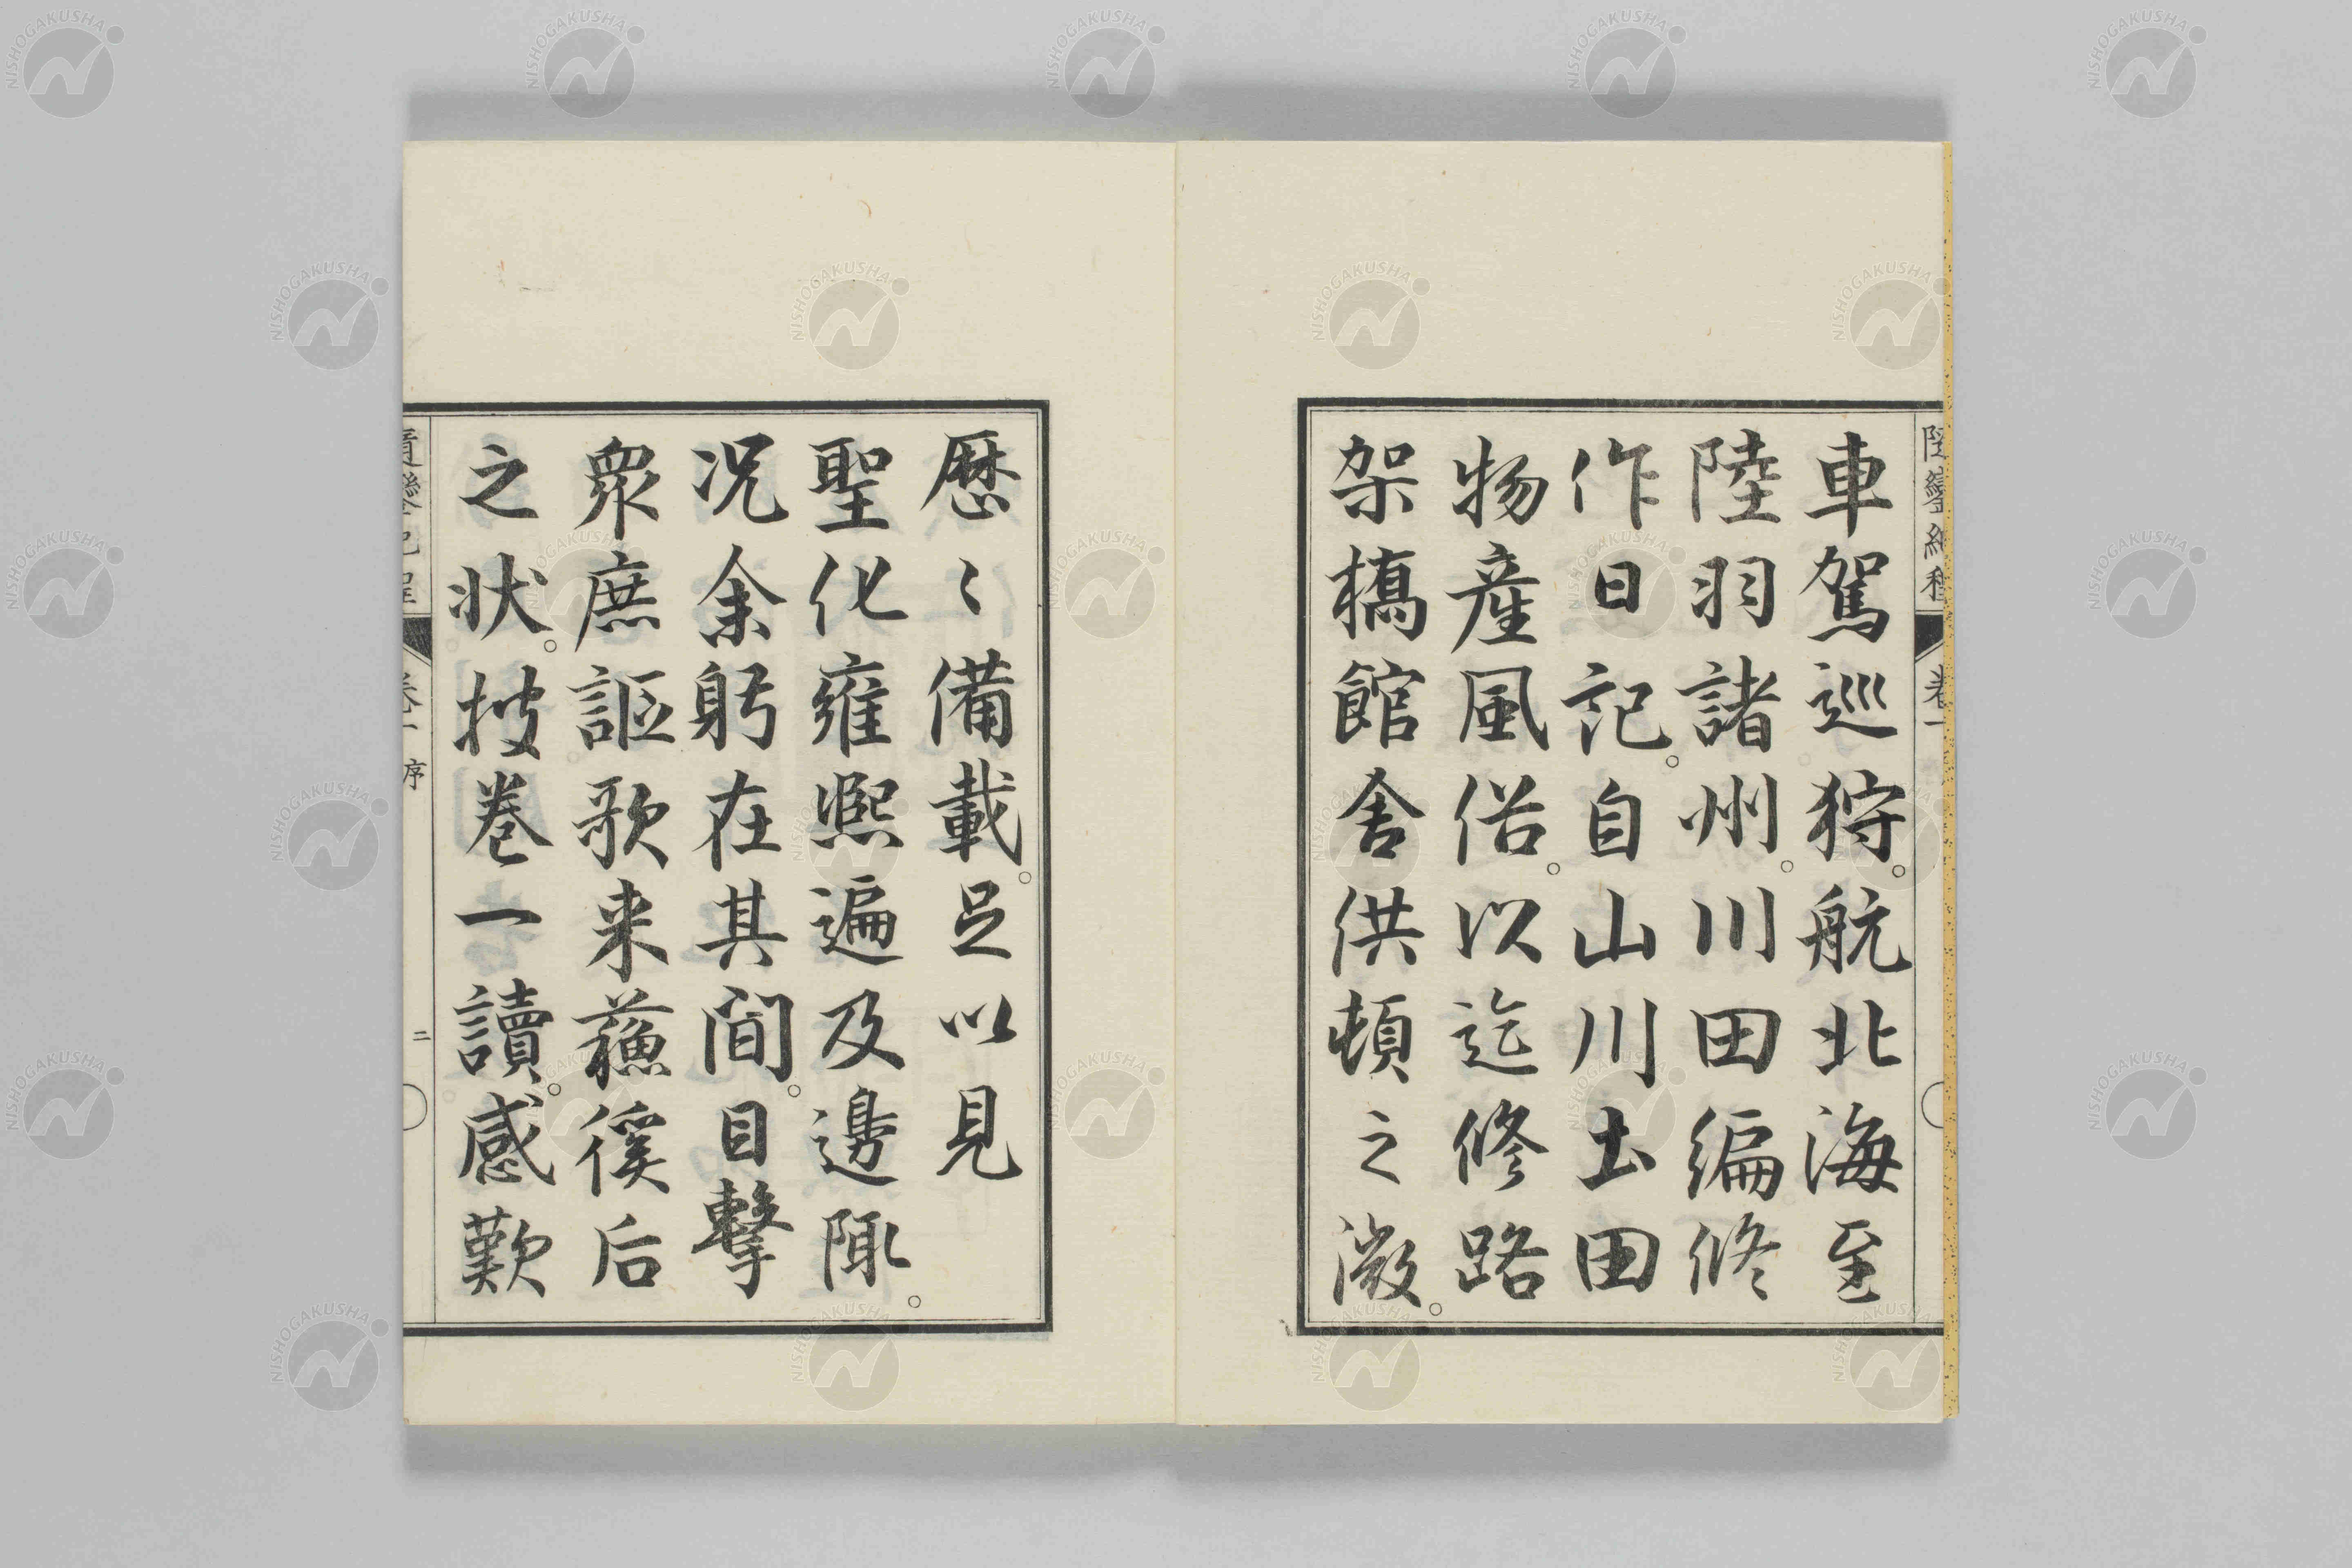 車駕巡狩。航北海至
陸羽諸州。川田編修
作日記。自山川土田
物産風俗。以迄修路
架橋館舎供頓之微。
歴〻備載。足以見
聖化雍熙遍及邊陬。
况余躬在其間。目擊
衆庶謳歌来蘓徯后
之状。披巻一讀。感歎
隨鑾紀程
卷一
序
二
NISHOGAKUSHA